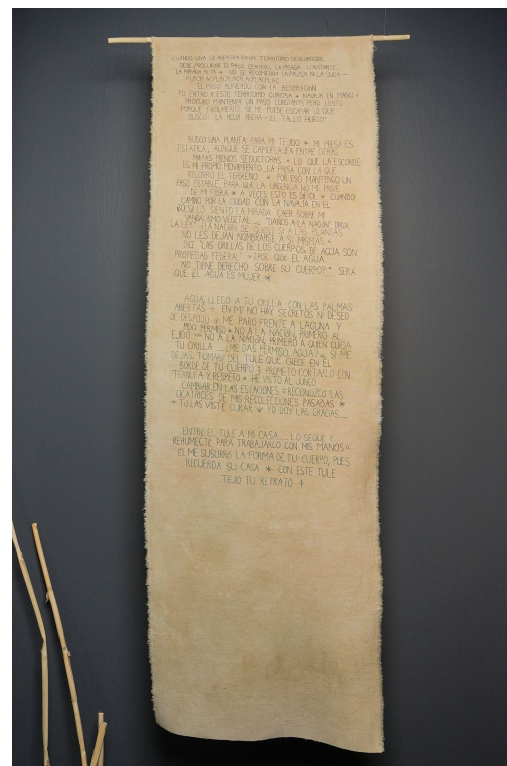 CUANDO UNA SE ADENTRA EN UN TERRITORIO DESCONOCIDO,
DEBE PROCURAR EL PASO CERTERO, LA PISADA CONSTANTE,
LA MIRADA ALTA * NO SE RECOMIENDA LA PAUSA NI LA DUDA —
EL PASO ALINEADO CON LA RESPIRACIÓN
YO ENTRO A ESTE TERRITORIO CURIOSA * NAVAJA EN MANO +
PROCURO MANTENER UN PASO CONSTANTE PERO LENTO
PORQUE FÁCILMENTE SE ME PUEDE ESCAPAR LO QUE
BUSCO: LA HOJA ANCHA — EL TALLO HUECO
BUSCO UNA PLANTA PARA MI TEJIDO * MI PRESA ES
ESTÁTICA, AUNQUE SE CAMUFLAJEA ENTRE OTRAS
MATAS MENOS SEDUCTORAS + LO QUE LA ESCONDE
ES MI PROPIO MOVIMIENTO, LA PRISA CON LA QUE
RECORRO EL TERRENO * POR ESO MANTENGO UN
PASO ESTABLE, PARA QUE LA URGENCIA NO ME PRIVE
DE MI FIBRA * A VECES ESTO ES DIFÍCIL + CUANDO
CAMINO POR LA CIUDAD CON LA NAVAJA EN EL
SIENTO LA MIRADA CAER SOBRE MI
VANDALISMO VEGETAL — "DAÑOS A LA NACIÓN" DIRÍA
LA LEY ¿LA NACIÓN DE QUIÉN? SI A LAS PLANTAS
NO LES DEJAN NOMBRARSE A SÍ MISMAS +
DICE "LAS ORILLAS DE LOS CUERPOS DE AGUA SON
PROPIEDAD FEDERAL" ¿POR QUÉ EL AGUA
NO TIENE DERECHO SOBRE SU CUERPO? SERÁ
QUE EL AGUA ES MUJER *
AGUA, LLEGO A TU ORILLA CON LAS PALMAS
ABIERTAS + EN MÍ NO HAY SECRETOS NI DESEO
DE DESPOJO * ME PARO FRENTE A LAGUNA Y
PIDO PERMISO * NO A LA NACIÓN, PRIMERO AL
EJIDO — NO A LA NACIÓN, PRIMERO A QUIEN CUIDA
TU ORILLA — ¿ME DAS PERMISO, AGUA? — SI ME
DEJAS, TOMARÉ DEL TULE QUE CRECE EN EL
BORDE DE TU CUERPO + PROMETO CORTARLO CON
TERNURA Y RESPETO * HE VISTO AL JUNCO
CAMBIAR EN LAS ESTACIONES = RECONOZCO LAS
CICATRICES DE MIS RECOLECCIONES PASADAS *
+ TÚ LAS VISTE CURAR ↓ YO DOY LAS GRACIAS —
ENTRE EL TULE A MI CASA — LO SEQUÉ Y
REHUMECTÉ PARA TRABAJARLO CON MIS MANOS
ÉL ME SUSURRÓ LA FORMA DE TU CUERPO, PUES
RECUERDA SU CASA * CON ESTE TULE
TEJO TU RETRATO +